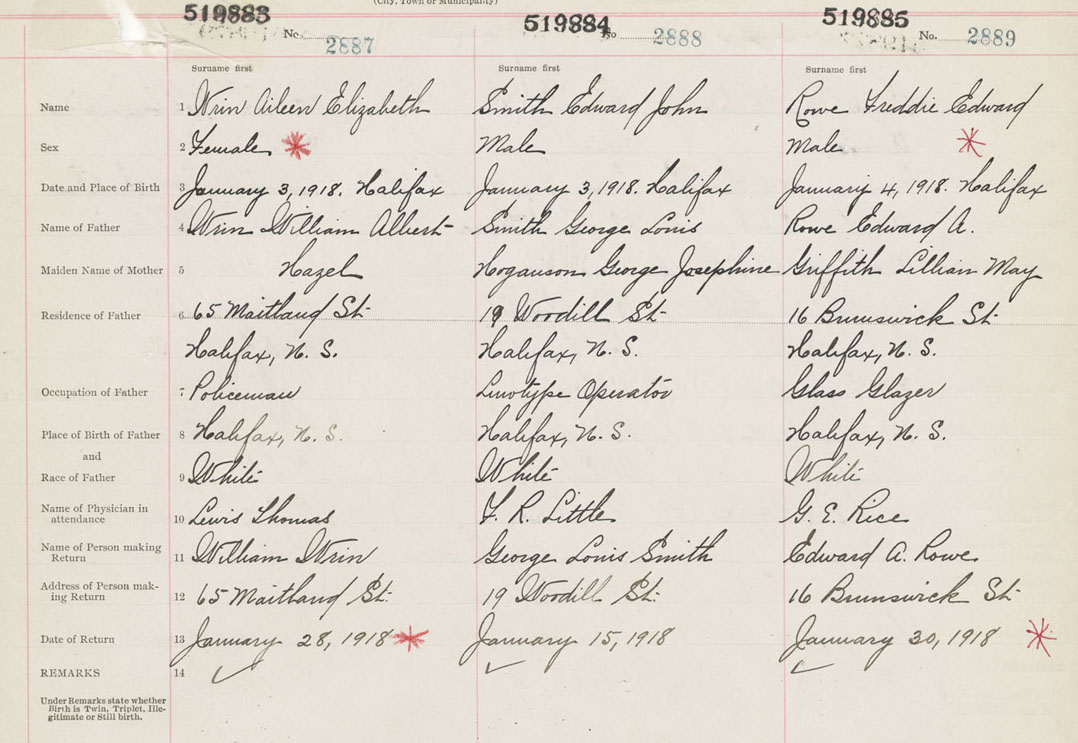 (City, Town or Municipality)
519883 519884 519885
No. 2887 No. 2888 No. 2889
Surname first Surname first Surname first
Name 1 Wrin Aileen Elizabeth Smith Edward John Rowe Freddie Edward
Sex 2 Female Male Male
Date and Place of Birth 3 January 3, 1918. Halifax January 3, 1918. Halifax January 4, 1918. Halifax
Name of Father 4 Wrin William Albert Smith George Louis Rowe Edward A.
Maiden Name of Mother 5 Hazel Hoganson George Josephine Griffith Lillian May
Residence of Father 6 65 Maitland St. 19 Woodill St. 16 Brunswick St.
Halifax, N. S. Halifax, N. S. Halifax, N. S.
Occupation of Father 7 Policeman Linotype Operator Glass Glazer
Place of Birth of Father 8 Halifax, N. S. Halifax, N. S. Halifax, N. S.
and
Race of Father 9 White White White
Name of Physician in attendance 10 Lewis Thomas F. R. Little G. E. Rice
Name of Person making Return 11 William Wrin George Louis Smith Edward A. Rowe
Address of Person making Return 12 65 Maitland St. 19 Woodill St. 16 Brunswick St.
Date of Return 13 January 28, 1918 January 15, 1918 January 30, 1918
REMARKS 14
Under Remarks state whether
Birth is Twin, Triplet, Ille-
gitimate or Still birth.